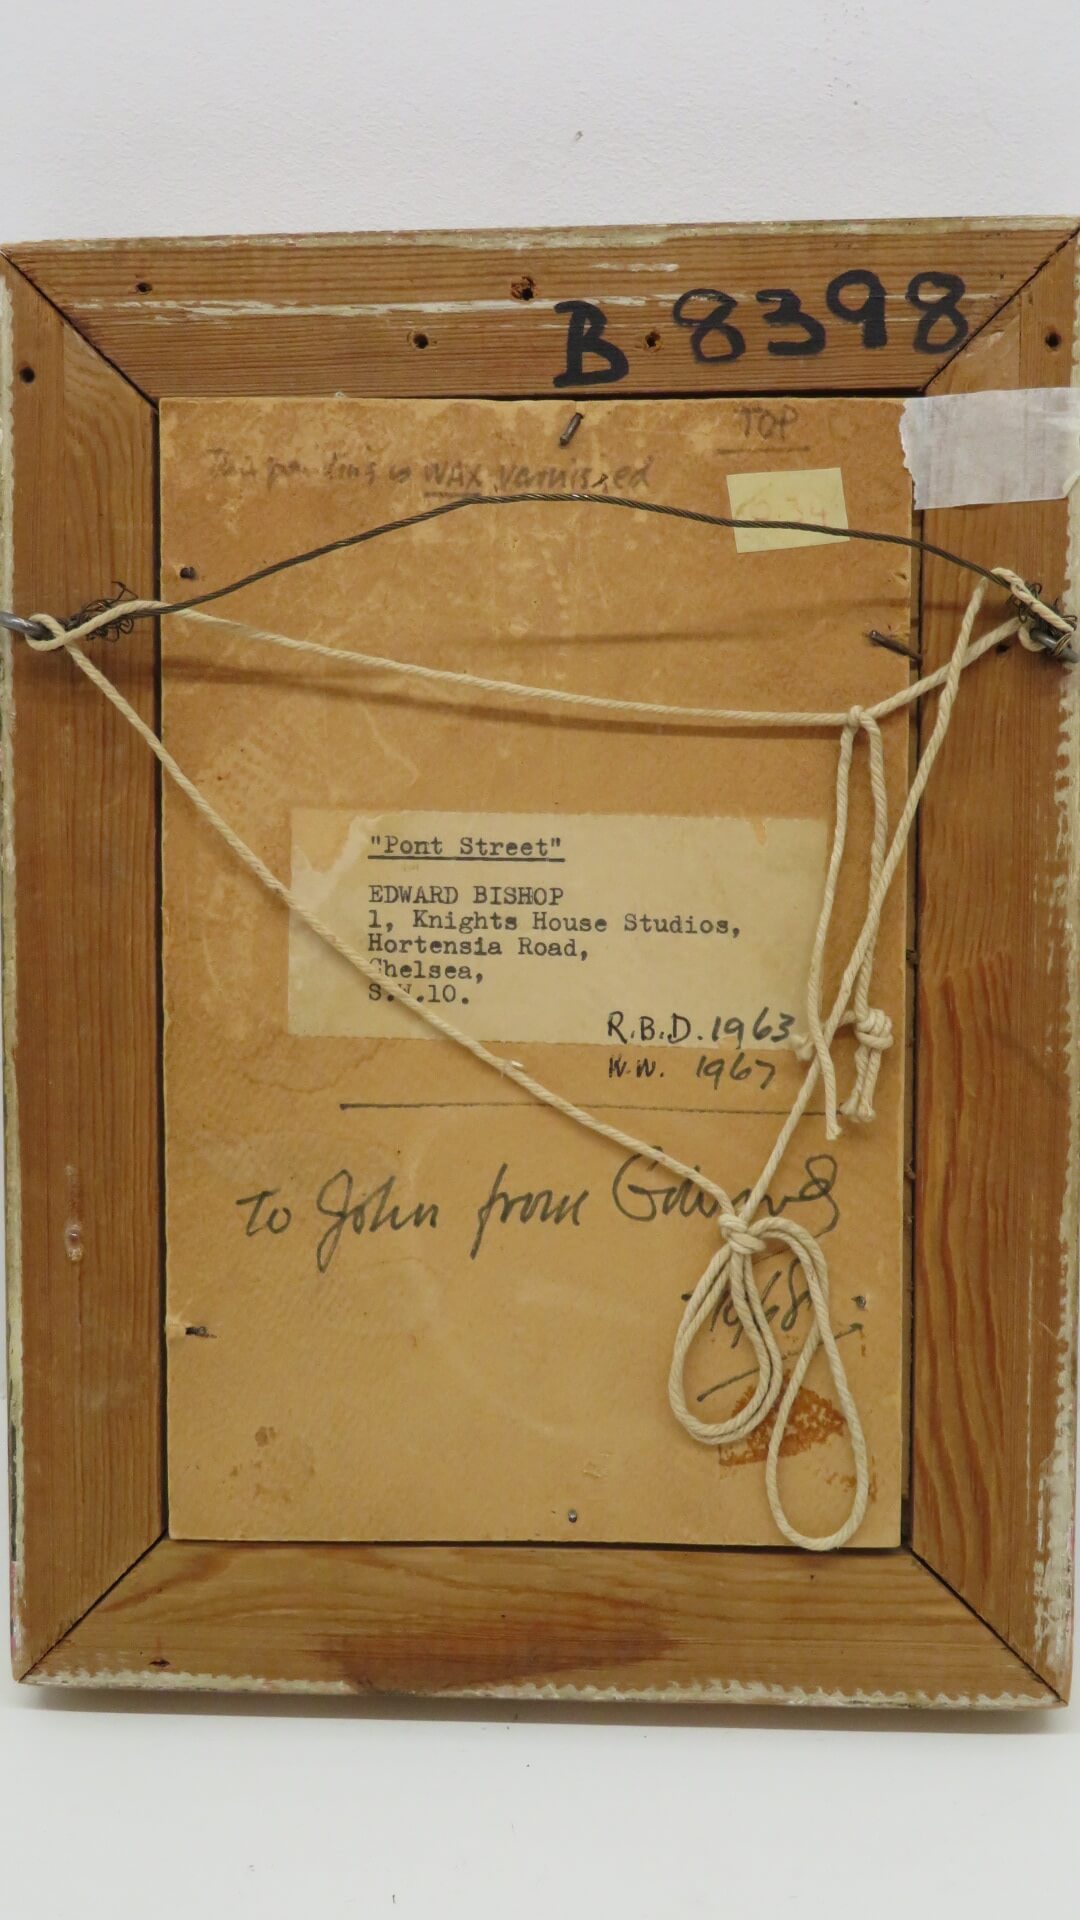 B 8398
TOP
This painting is WAX varnished
"Pont Street"
EDWARD BISHOP
1, Knights House Studios,
Hortensia Road,
Chelsea,
S.W.10.
R.B.D. 1963
N.W. 1967
To John from Edward
1968